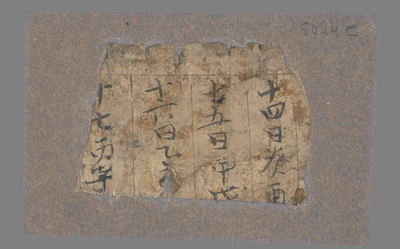 十四日癸酉
十五日甲戌
十六日乙亥
十七